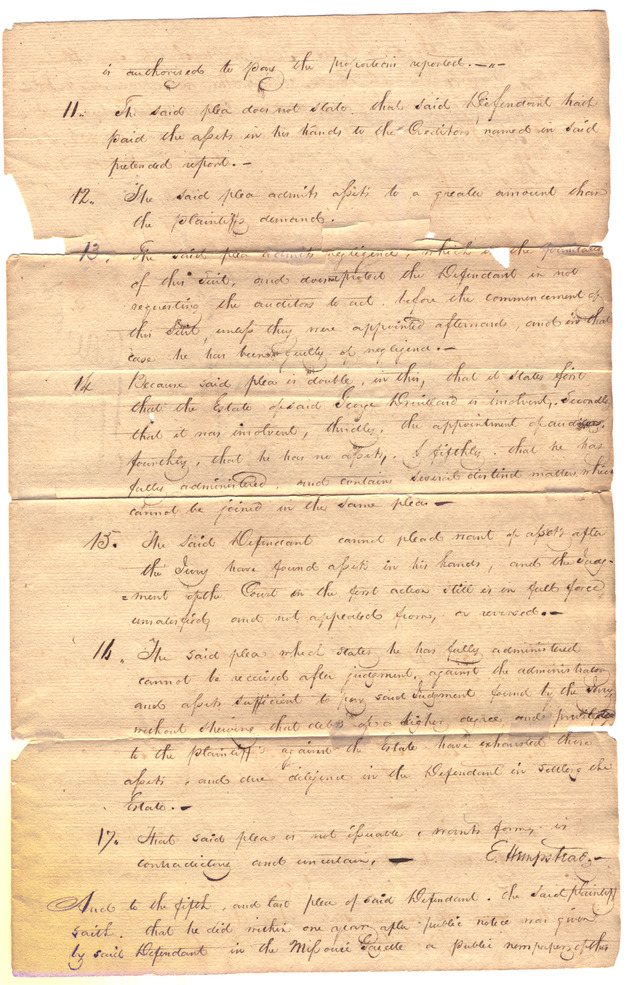 is authorised to pay the proportion reported.—"—
11. The said plea does not state that said Defendant hath
paid the assets in his hands to the Creditors named in said
pretended report.—
12. The said plea admits assets to a greater amount than
the plaintiffs demand.
13. The said plea admits negligence, which is the foundation
of this suit, and does not protect the Defendant in not
requesting the auditors to act before the commencement of
this Suit, unless they were appointed afterwards, and in that
case he has been guilty of negligence.—
14 Because said plea is double, in this, that it states first
that the Estate of said George is insolvent, Secondly
that it was insolvent, thirdly, the appointment of auditors,
fourthly, that he has no assets, & fifthly. that he has
fully administered, and contains several distinct matters which
cannot be joined in the same plea—
15. The said Defendant cannot plead want of assets after
the Jury have found assets in his hands, and the Judg-
=ment of the Court in the first action still is in full force,
unsatisfied, and not appealed from, or reversed.—
16. The said plea which states he has fully administered
cannot be received after judgement, against the administrator
and assets sufficient to pay said Judgment found by the Jury
without shewing that debts of a higher degree and
to the plaintiff against the Estate have exhausted these
assets, and due diligence in the Defendant in settling the
Estate.—
17. That said plea is not issuable, wants form, is
contradictory and uncertain,— E. Hempstead.—
And to the fifth, and last plea of said Defendant. the said plaintiff
saith. that he did within one year after public notice was given
by said Defendant in the Missouri Gazette a public newspaper, of this